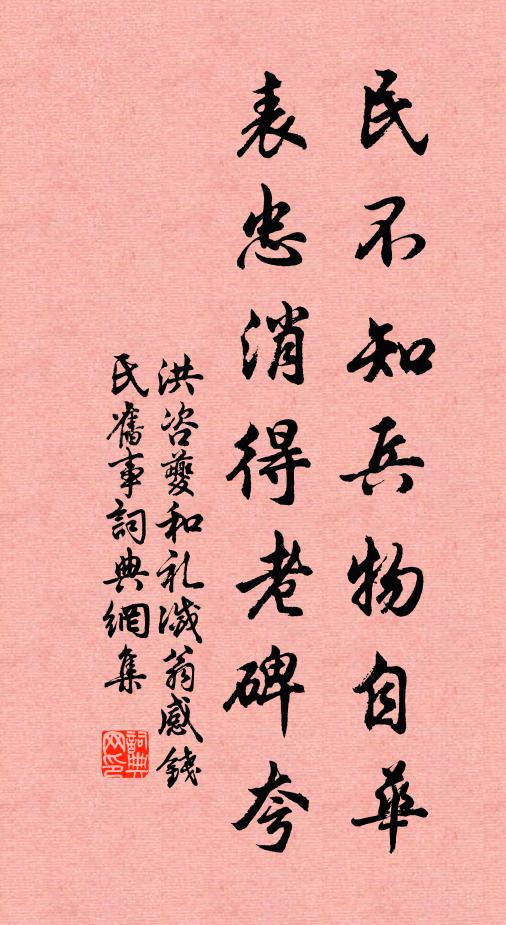 民不知兵物自華
表忠消得老碑夸
洪咨夔和礼誠翁感錢
民舊事詞典網集
詞典
网印